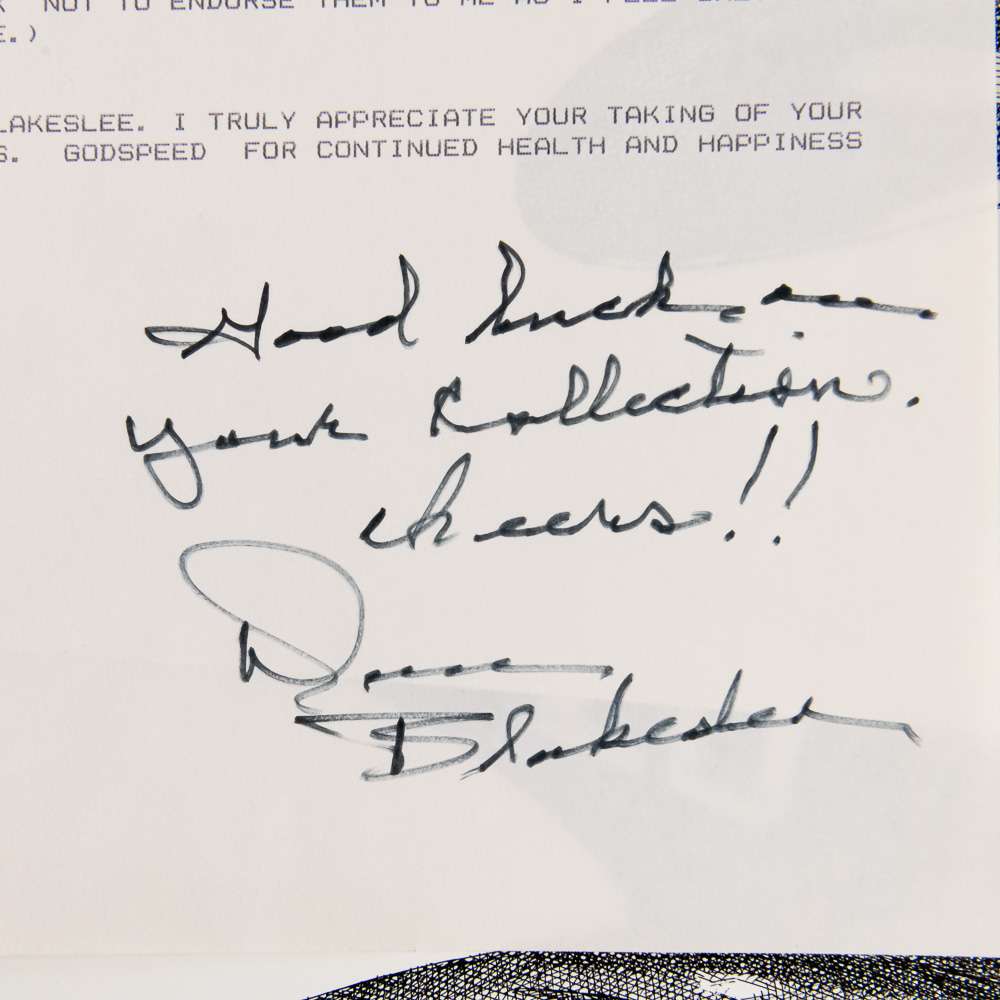 NOT TO ENDORSE THEM TO ME AS I FEEL
E.)
LAKESLEE. I TRULY APPRECIATE YOUR TAKING OF YOUR
S. GODSPEED FOR CONTINUED HEALTH AND HAPPINESS
Good luck on
your Collection.
cheers!!
Don
Blakeslee